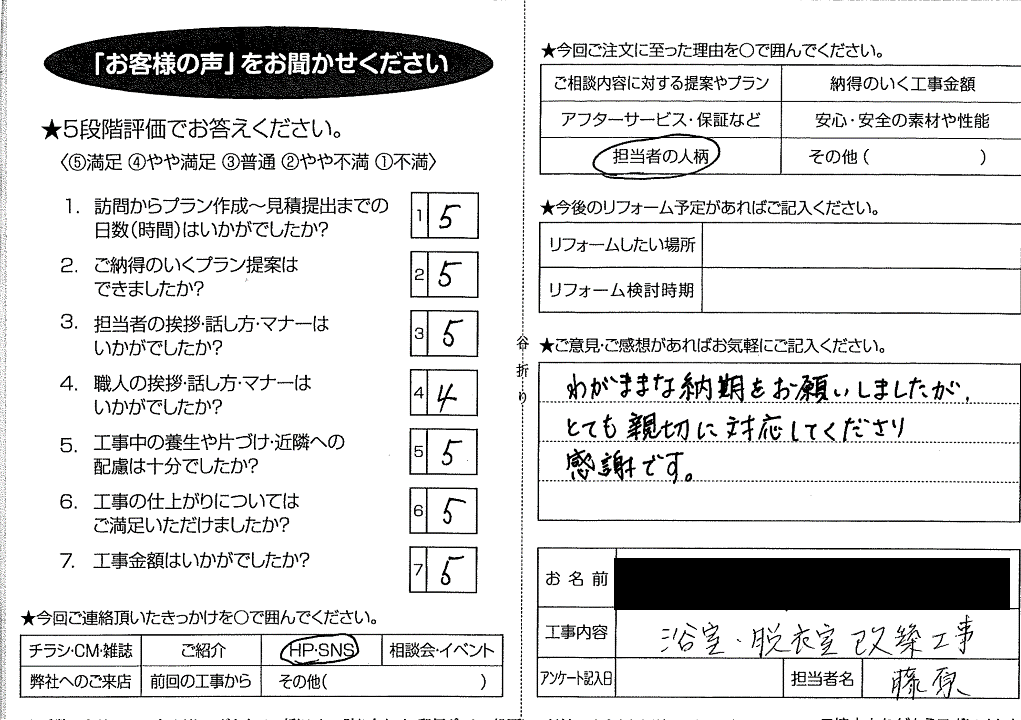 「お客様の声」をお聞かせください
★5段階評価でお答えください。
〈⑤満足 ④やや満足 ③普通 ②やや不満 ①不満〉
1. 訪問からプラン作成～見積提出までの
日数(時間)はいかがでしたか?
1 5
2. ご納得のいくプラン提案は
できましたか?
2 5
3. 担当者の挨拶・話し方・マナーは
いかがでしたか?
3 5
4. 職人の挨拶・話し方・マナーは
いかがでしたか?
4 4
5. 工事中の養生や片づけ・近隣への
配慮は十分でしたか?
5 5
6. 工事の仕上がりについては
ご満足いただけましたか?
6 5
7. 工事金額はいかがでしたか?
7 5
★今回ご連絡頂いたきっかけを○で囲んでください。
チラシ・CM・雑誌 ご紹介 HP・SNS 相談会・イベント
弊社へのご来店 前回の工事から その他( )
谷折り
★今回ご注文に至った理由を○で囲んでください。
ご相談内容に対する提案やプラン 納得のいく工事金額
アフターサービス・保証など 安心・安全の素材や性能
担当者の人柄 その他( )
★今後のリフォーム予定があればご記入ください。
リフォームしたい場所
リフォーム検討時期
★ご意見・ご感想があればお気軽にご記入ください。
わがままな納期をお願いしましたが、
とても親切に対応してくださり
感謝です。
お名前
工事内容 浴室・脱衣室改築工事
アンケート記入日 担当者名 藤原